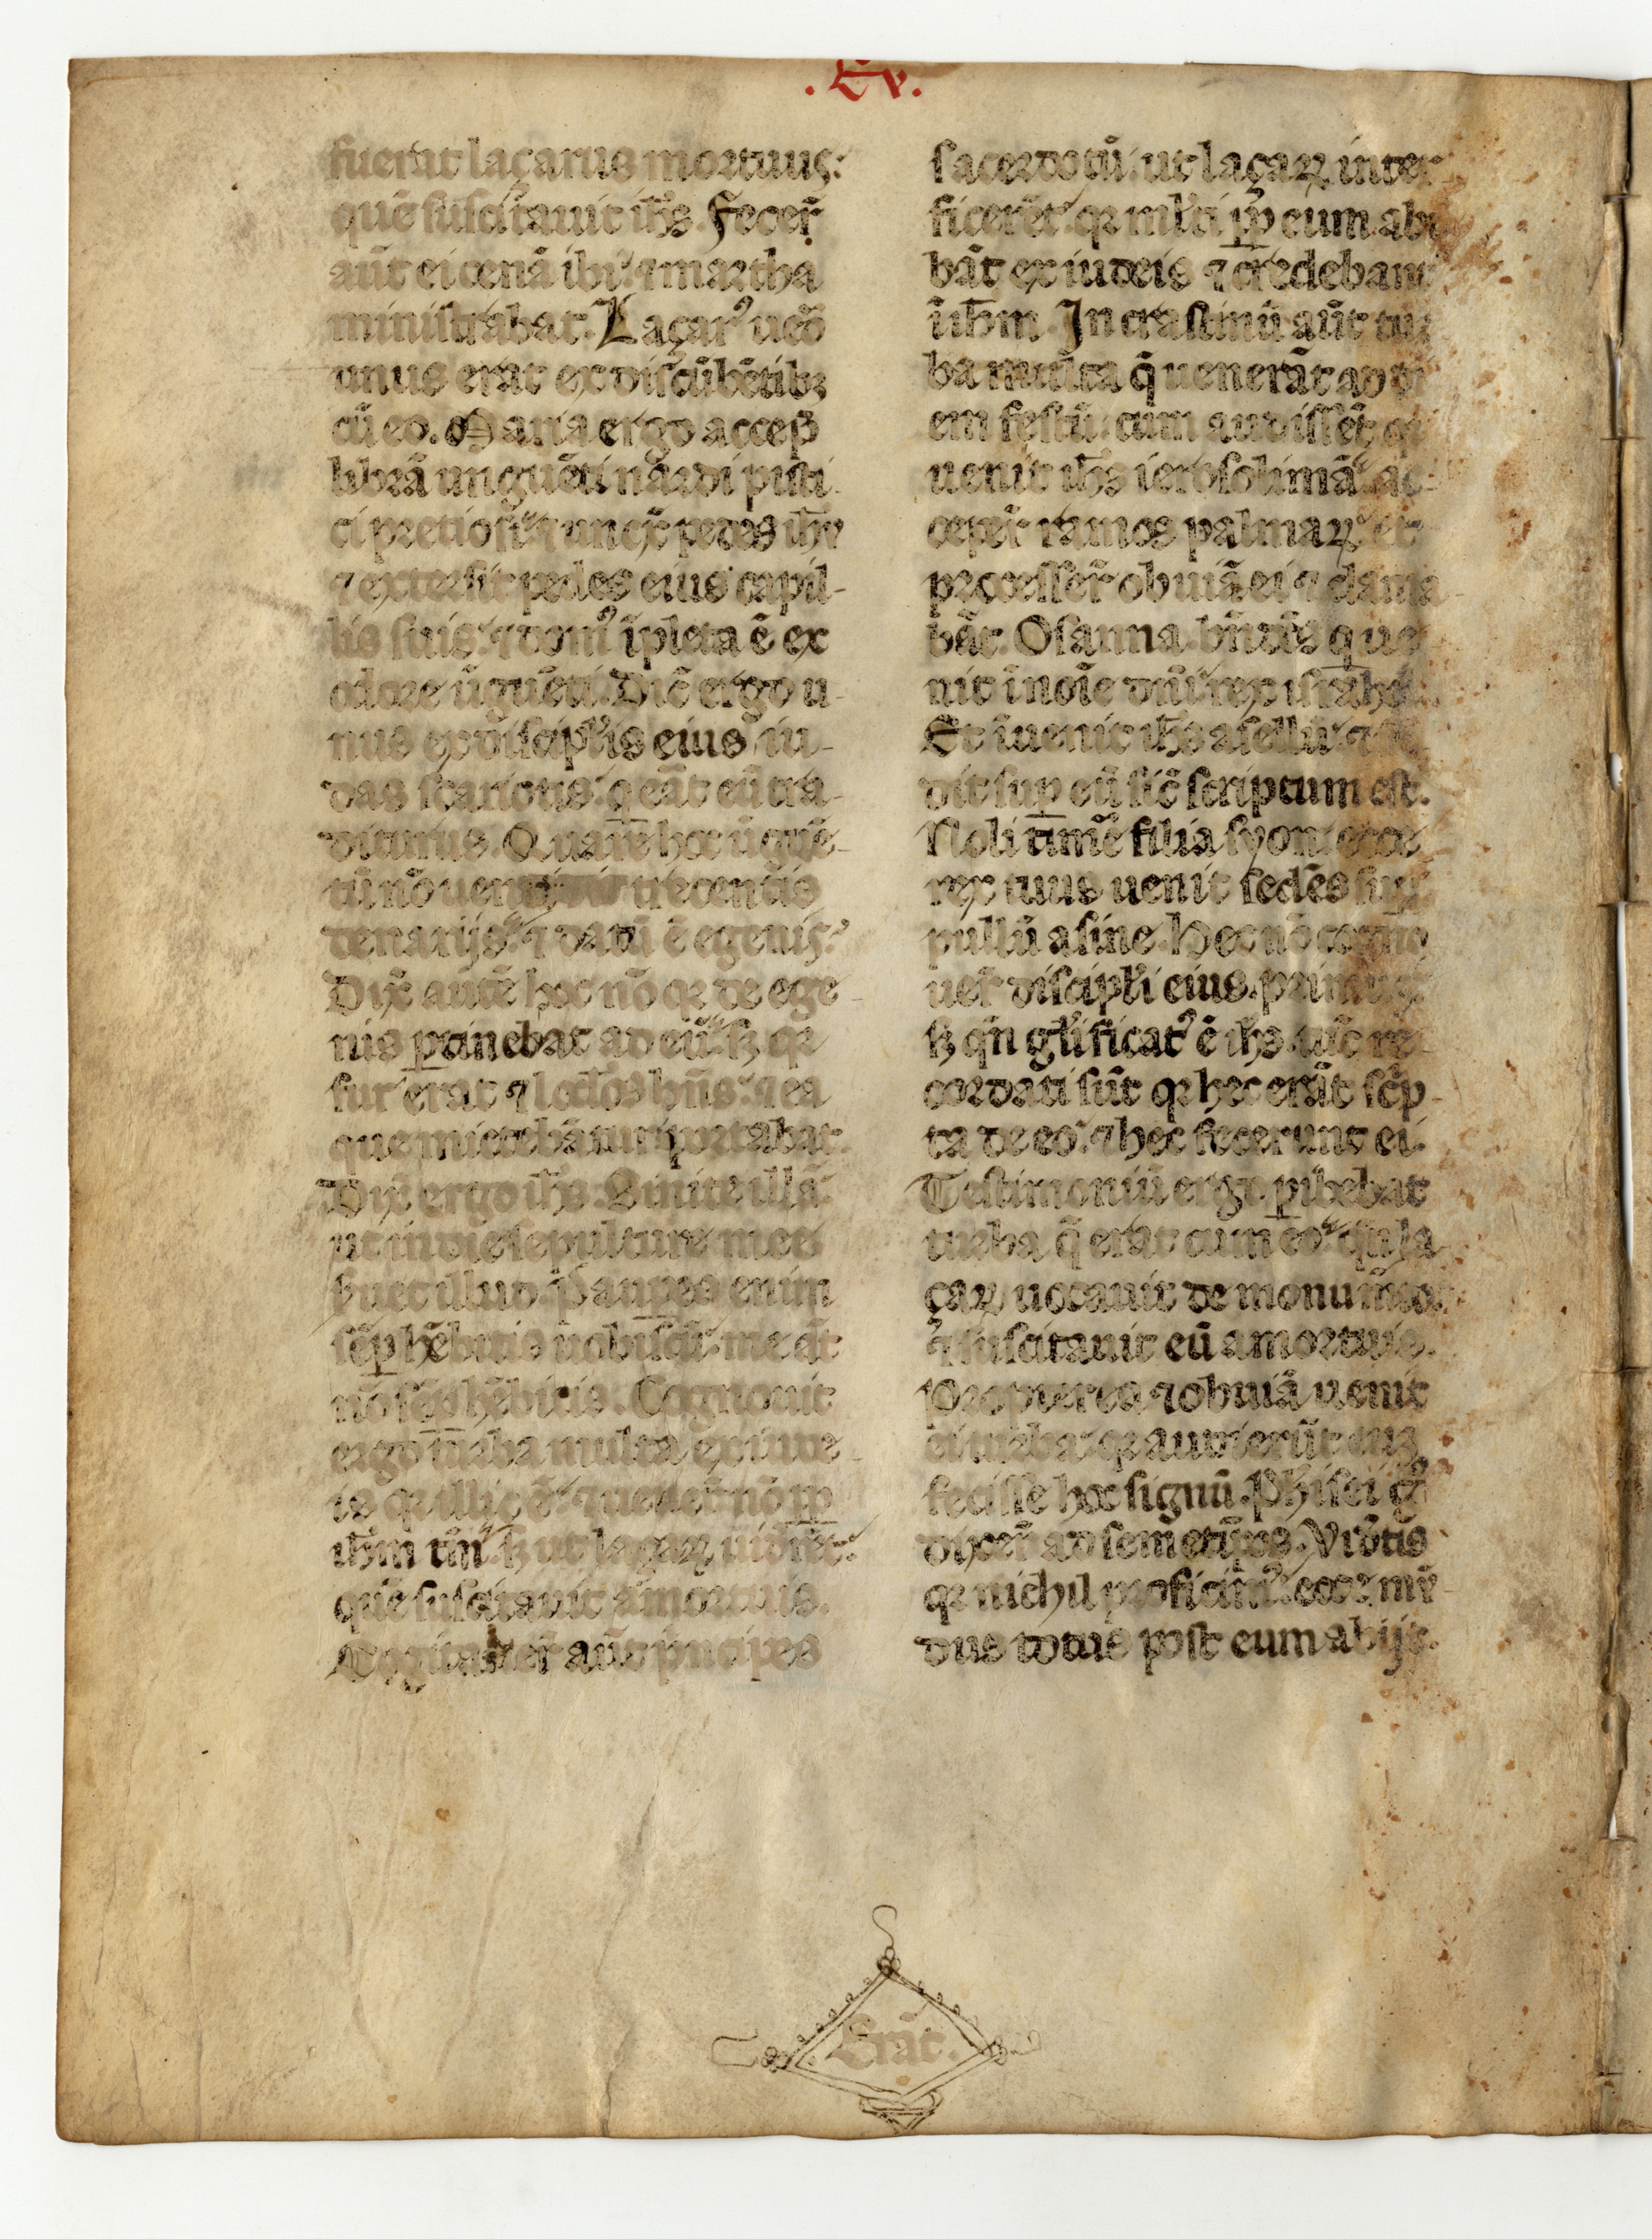 .Ev.
fuerat laçarus mortuus:
quē suscitauit ih̄s. Fecer̄
aūt ei cenā ibi. ⁊ martha
ministrabat. Laçarꝰ ūo
unus erat ex discūbētibꝫ
cū eo. Maria ergo accep̄
librā unguēti nardi pisti-
ci pretiosi. ⁊ unx̄ pedes ih̄u
⁊ extersit pedes eius capil-
lis suis. ⁊ domꝰ īpleta ē ex
odore ūguēti. Dic̄ ergo u-
nus ex discipl̄is eius iu-
das scariotis. q̄ erāt eū tra-
diturus. Quare hoc ūguē-
tū nō trecentis
denarijs. ⁊ datū ē egenis.
Dix̄ autē hoc nō qꝛ de ege-
nis ꝑtinebat ad eū. sꝫ qꝛ
fur erat ⁊ loclos hn̄s. ⁊ ea
que mictebātur portabat.
Dix̄ ergo ih̄s. Sinite illā.
ut in die sepulture mee
ẜuet illud. Pauꝑes enim
sēꝑ hēbitis uobiscū. me āt
nō sēꝑ hēbitis. Cognouit
ergo turba multa ex iude-
is qꝛ illic ē. ⁊ uener̄t nō ꝓp̄
ih̄m tm̄. sꝫ ut laçaꝝ uider̄et.
quē suscitauit a mortuis.
Cogitauer̄ aūt pͥncipes
sacerdotū. ut laçaꝝ inter
ficerēt. qꝛ ml̄ti ꝓp̄ eum abi
bāt ex iudeis ⁊ credebant
ī ih̄m. In crastinū aūt tur
ba multa q̄ uenerāt ad di
em festū. cum audissēt qꝛ
uenit ih̄s ierosolimā. ac-
ceper̄ ramos palmaꝝ. et
processer̄ obuiā ei ⁊ clama
bāt. Osanna. bn̄dc̄s q̄ ue
nit ī noīe dn̄i rex israhel.
Et īuenit ih̄s asellū. ⁊ se
dit sup̄ eū sic̄ scriptum est.
Noli timē filia syon. ecce
rex tuus uenit sedēs suꝑ
pullū asine. Hec nō cogno
uer̄ discipl̄i eius. primum.
sꝫ qn̄ gl̄ificatꝰ ē ih̄s. tūc re-
cordati sūt qꝛ hec erāt sc̄p-
ta de eo. ⁊ hec fecerunt ei.
Testimoniū ergo ꝑhibebat
turba q̄ erat cum eo. qn̄ la
çaꝝ uocauit de monumēto.
⁊ suscitauit eū a mortuis.
Propterea ⁊ obuiā uenit
ei turba. qꝛ audierūt eum
fecisse hoc signū. Ph̄isei gͦ
dixer̄ ad semetip̄os. Vidētis
qꝛ nichil proficimꝰ. ecce mū-
dus totus post eum abijt.
Erāt.